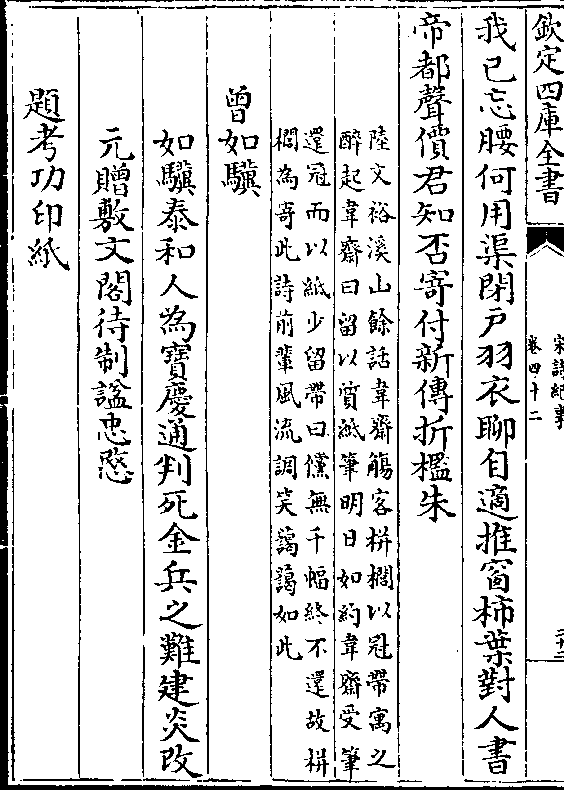 欽定四庫全書
宋詩紀事
卷四十二
我已忘腰何用渠閉戸羽衣聊自適推窗柿葉對人書
帝都聲價君知否寄付新傳折檻朱
陸文裕溪山餘話韋齋觴客栟櫚以冠帶寓之
醉起韋齋曰留以質紙筆明日如約韋齋受筆
還冠而以紙少留帶曰儻無千幅終不還故栟
櫚為寄此詩前輩風流調笑藹藹如此
曾如驥
如驥泰和人為寶慶通判死金兵之難建炎改
元贈敷文閣待制諡忠愍
題考功印紙